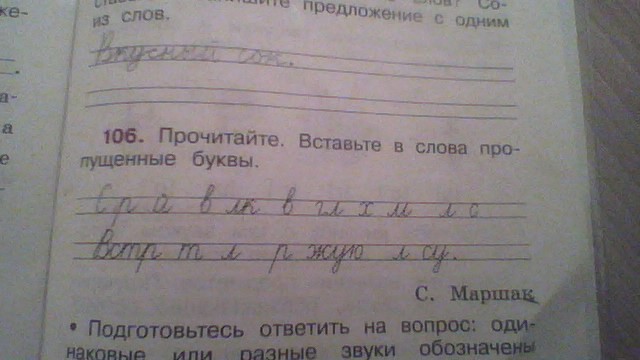 же-
пишите предложение с одним
из слов.
Вкусный сок.
а-
а
е
106. Прочитайте. Вставьте в слова про-
пущенные буквы.
С р а в лк в гл х м л с
Встр т л р жую л су.
С. Маршак
• Подготовьтесь ответить на вопрос: оди-
наковые или разные звуки обозначены